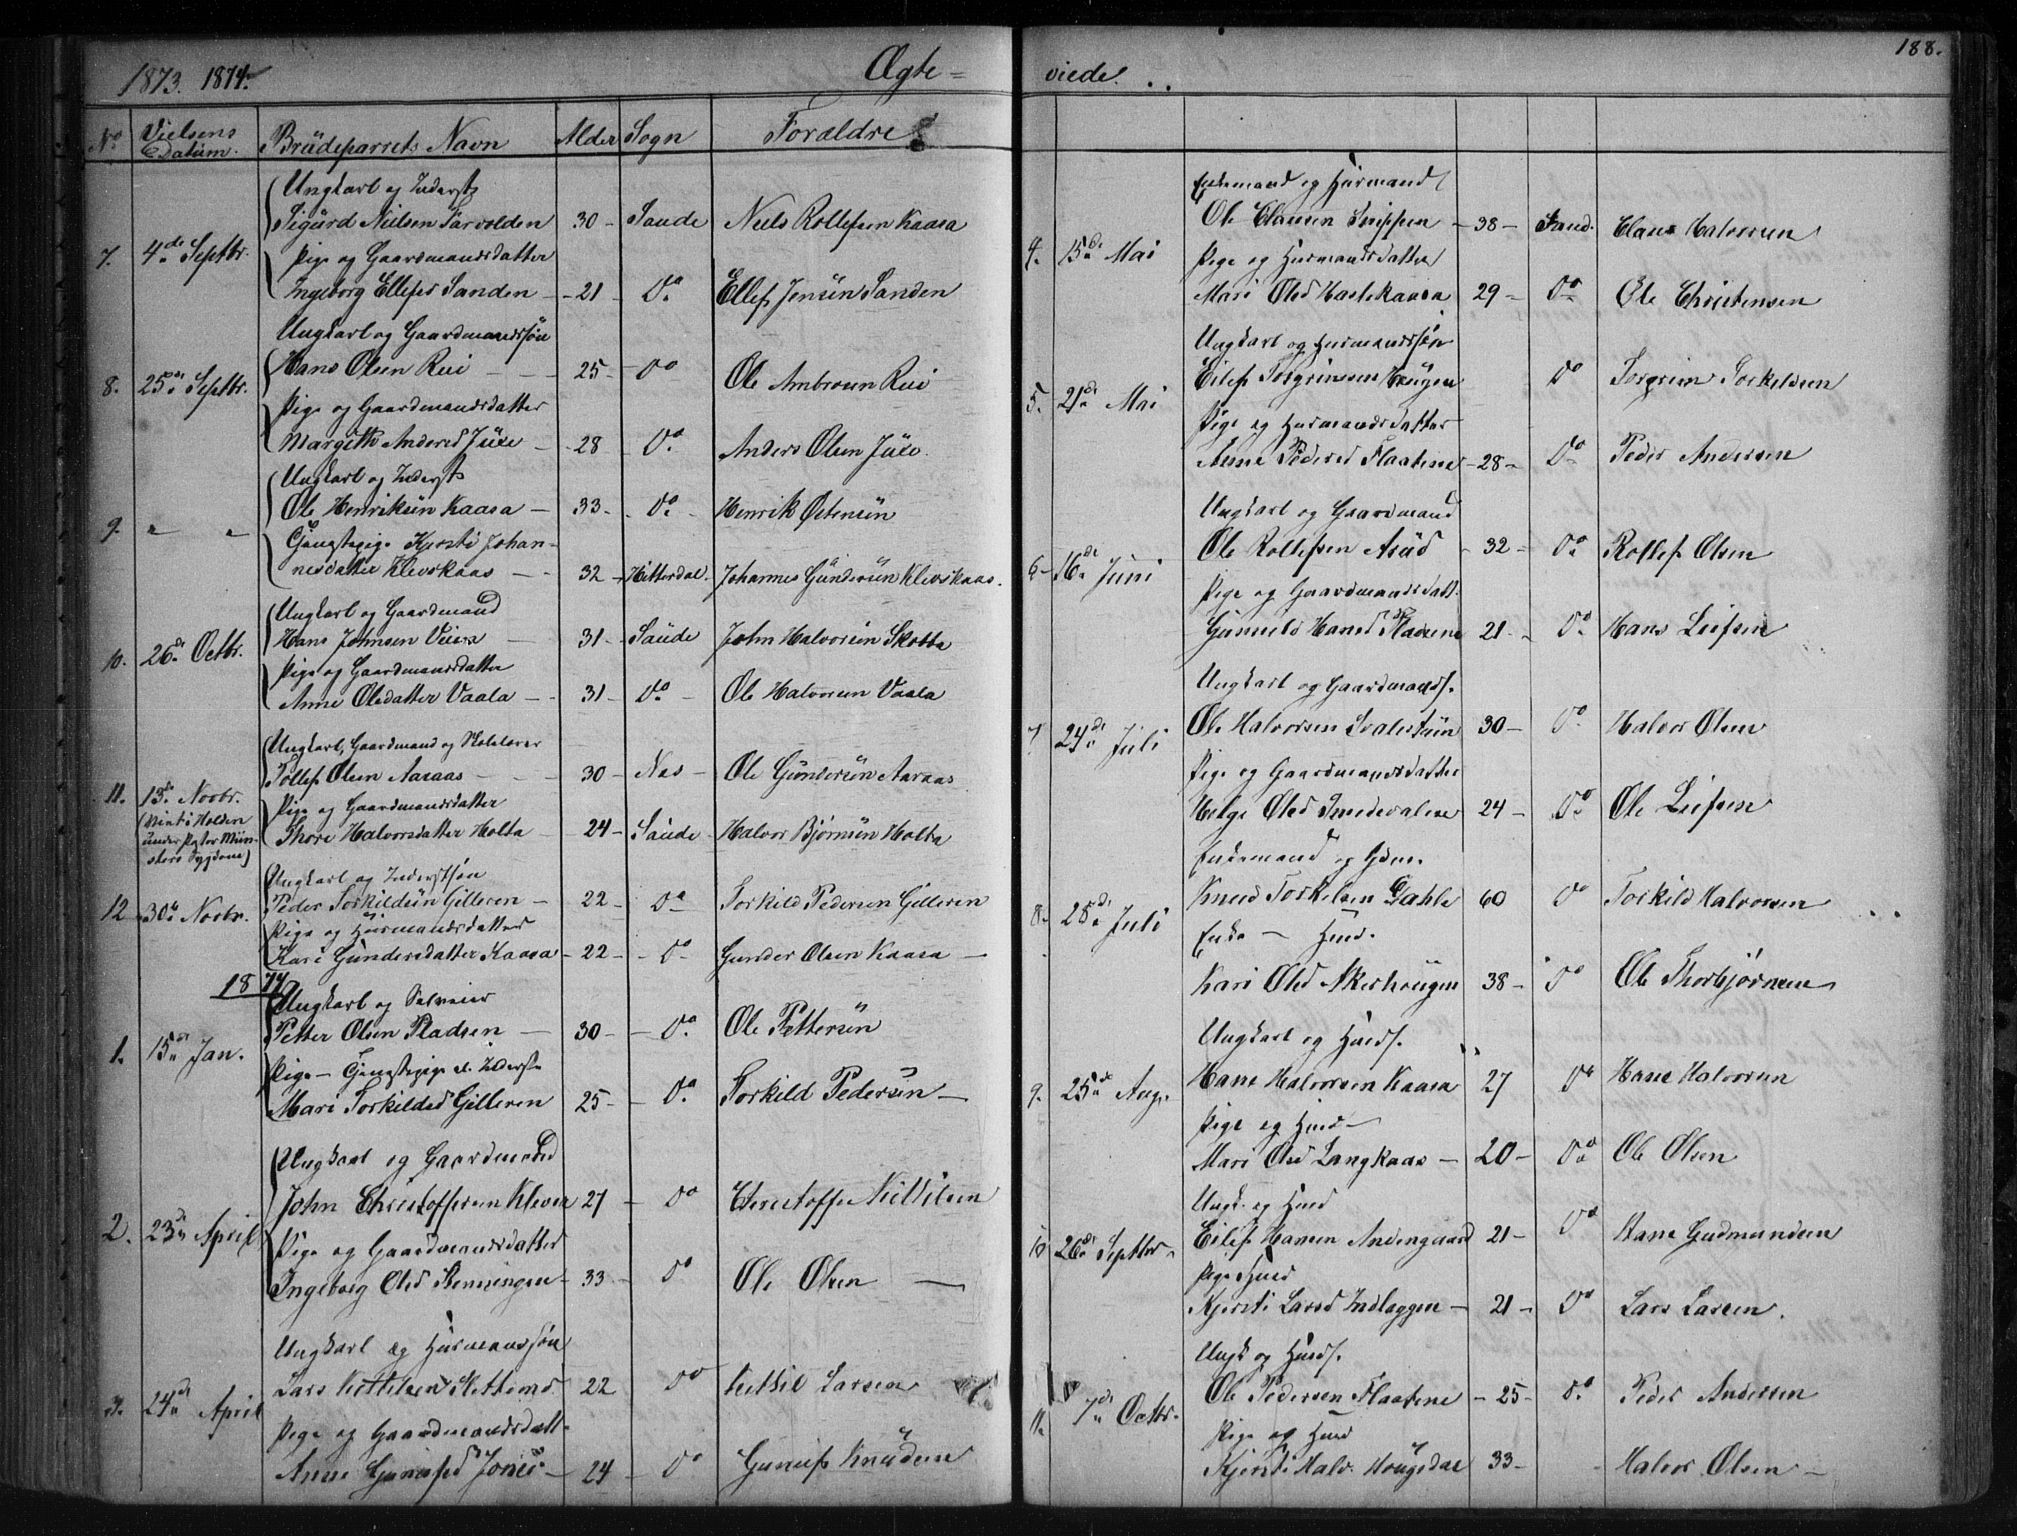 188.
1873. 1874.
Ægte = viede.
No Vielsens Datum. Brüdeparrets Navn Alder Sogn Forældre
Ungkarl og Inderst
Sigürd Nielsen Tarvolden 30 - Saude Niels Rollefsen Kaasa
7. 4de Septbr.
Pige og Gaardmandsdatter
Ingeborg Ellefsd Sanden - 21 - Do Ellef Jensen Sanden
Ungkarl og Gaardmandssøn
Hans Olsen Rui - 25 - Do Ole Ambrosen Rui
8. 25de Septbr.
Pige og Gaardmandsdatter
Margith Andersd Jüve - 28 - Do Anders Olsen Jüve.
Ungkarl og Inderst
Ole Henriksün Kaasa - 33 - Do - Henrik Østensün
9. " "
Gjengstepige Kjersti Johan-
nesdatter Klevskaas - 32 - Hitterdal. Johannes Gündersün Klevskaas.
Ungkarl og Gaardmand
Hans Johnsen - 31 - Saüde John Halvorsün Skotta
10. 26de Octbr.
Pige og Gaardmandsdatter
Anne Olsdatter Vaala - 31 - Do - Ole Halvorsen Vaala
Ungkarl, Gaardmand og Skolelærer
Tollef Olsen Aaraas - 30 - Nes - Ole Gündersün Aaraas
11. 13de Novbr.
(Viet i Holden under Pastor Mün-
sters Sygdom)
Pige og Gaardmandsdatter
Thore Halvorsdatter Holta - 24 - Saüde Halvor Bjørnsün Holta
Ungkarl og Inderstsøn
Peder Torkildsün Gilleren - 22 - Do Torkild Pedersen Gilleren
12 30te Novbr.
Pige og Hüsmandsdatter
Kari Gündersdatter Kaasa - 22 - Do Gunder Olsen Kaasa -
1874
Ungkarl og Selveier
Petter Olsen Pladsen - 30 - Do Ole Pettersün
1. 15de Jan.
Pige - Gjengstepige el. Inderst
Mari Torkildsd Gilleren 25 - Do Torkild Pedersen -
Ungkarl og Gaardmand
John Christoffersen Kleven 27 - Do Christoffer Kittilsen
2. 23de April
Pige og Gaardmandsdatter
Ingeborg Olsd - 33 - Do Ole Olsen -
Ungkarl og Hüsmandssøn
Lars Kittilsen 22 Do Kittil Larsen
3. 24de April
Pige og Gaardmandsdatt.
Anne - 24 - Do Knudsen
Enkemand og Hüsmand
Ole Clausen Snippen - 38 - Saud. Claus Halvorsen
4. 15de Mai
Pige og Husmandsdatter
Mari Olsd 29 - Do Ole Christensen
Ungkarl og Husmandssøn
Eilef Torgrimsen Haugen Do Torgrim Torkildsen
5. 21de Mai
Pige og Husmandsdatter
Anne Pedersd Flaatene - 28 - Do Peder Andersen
Ungkarl og Gaardmand
Ole Rollefsen - 32 - Do Rollef Olsen
6 - 16de Juni
Pige og Gaardmandsdatt.
Gunnild Hansd 21 - Do Hans Leifsen
Ungkarl og Gaardmands.
Ole Halvorsen 30 - Do Halvor Olsen
7 24de Juli
Pige og Gaardmandsdatter
Helge Olsd 24 - Do Ole Leifsen
Enkemand og Gdm.
Knud Torkelsen Dahle 60 Do Torkild Halvorsen
8. 28de Juli
Enke - Husd.
Kari Olsd Akerhougen 38 - Do Ole Thorbjørnsen
Ungkarl og Huss.
Hans Halvorsen Kaasa 27 Do Hans Halvorsen
9. 25de Aug.
Pige og Husd -
Mari Olsd Langkaas - 20 - Do Ole Olsen
Ungk. og Husd
Eilef Hansen 21 - Do Hans Gudmundsen
10 26de Septbr
Pige Husd
Kjersti Larsd - 21 - Do Lars Larsen.
Ungk og Huss.
Ole Pedersen Flaatene - 25 - Do Peder Andersen
11. 7de Octbr.
Pige og Husd
Kjersti Halv. 33 - - Halvor Olsen -